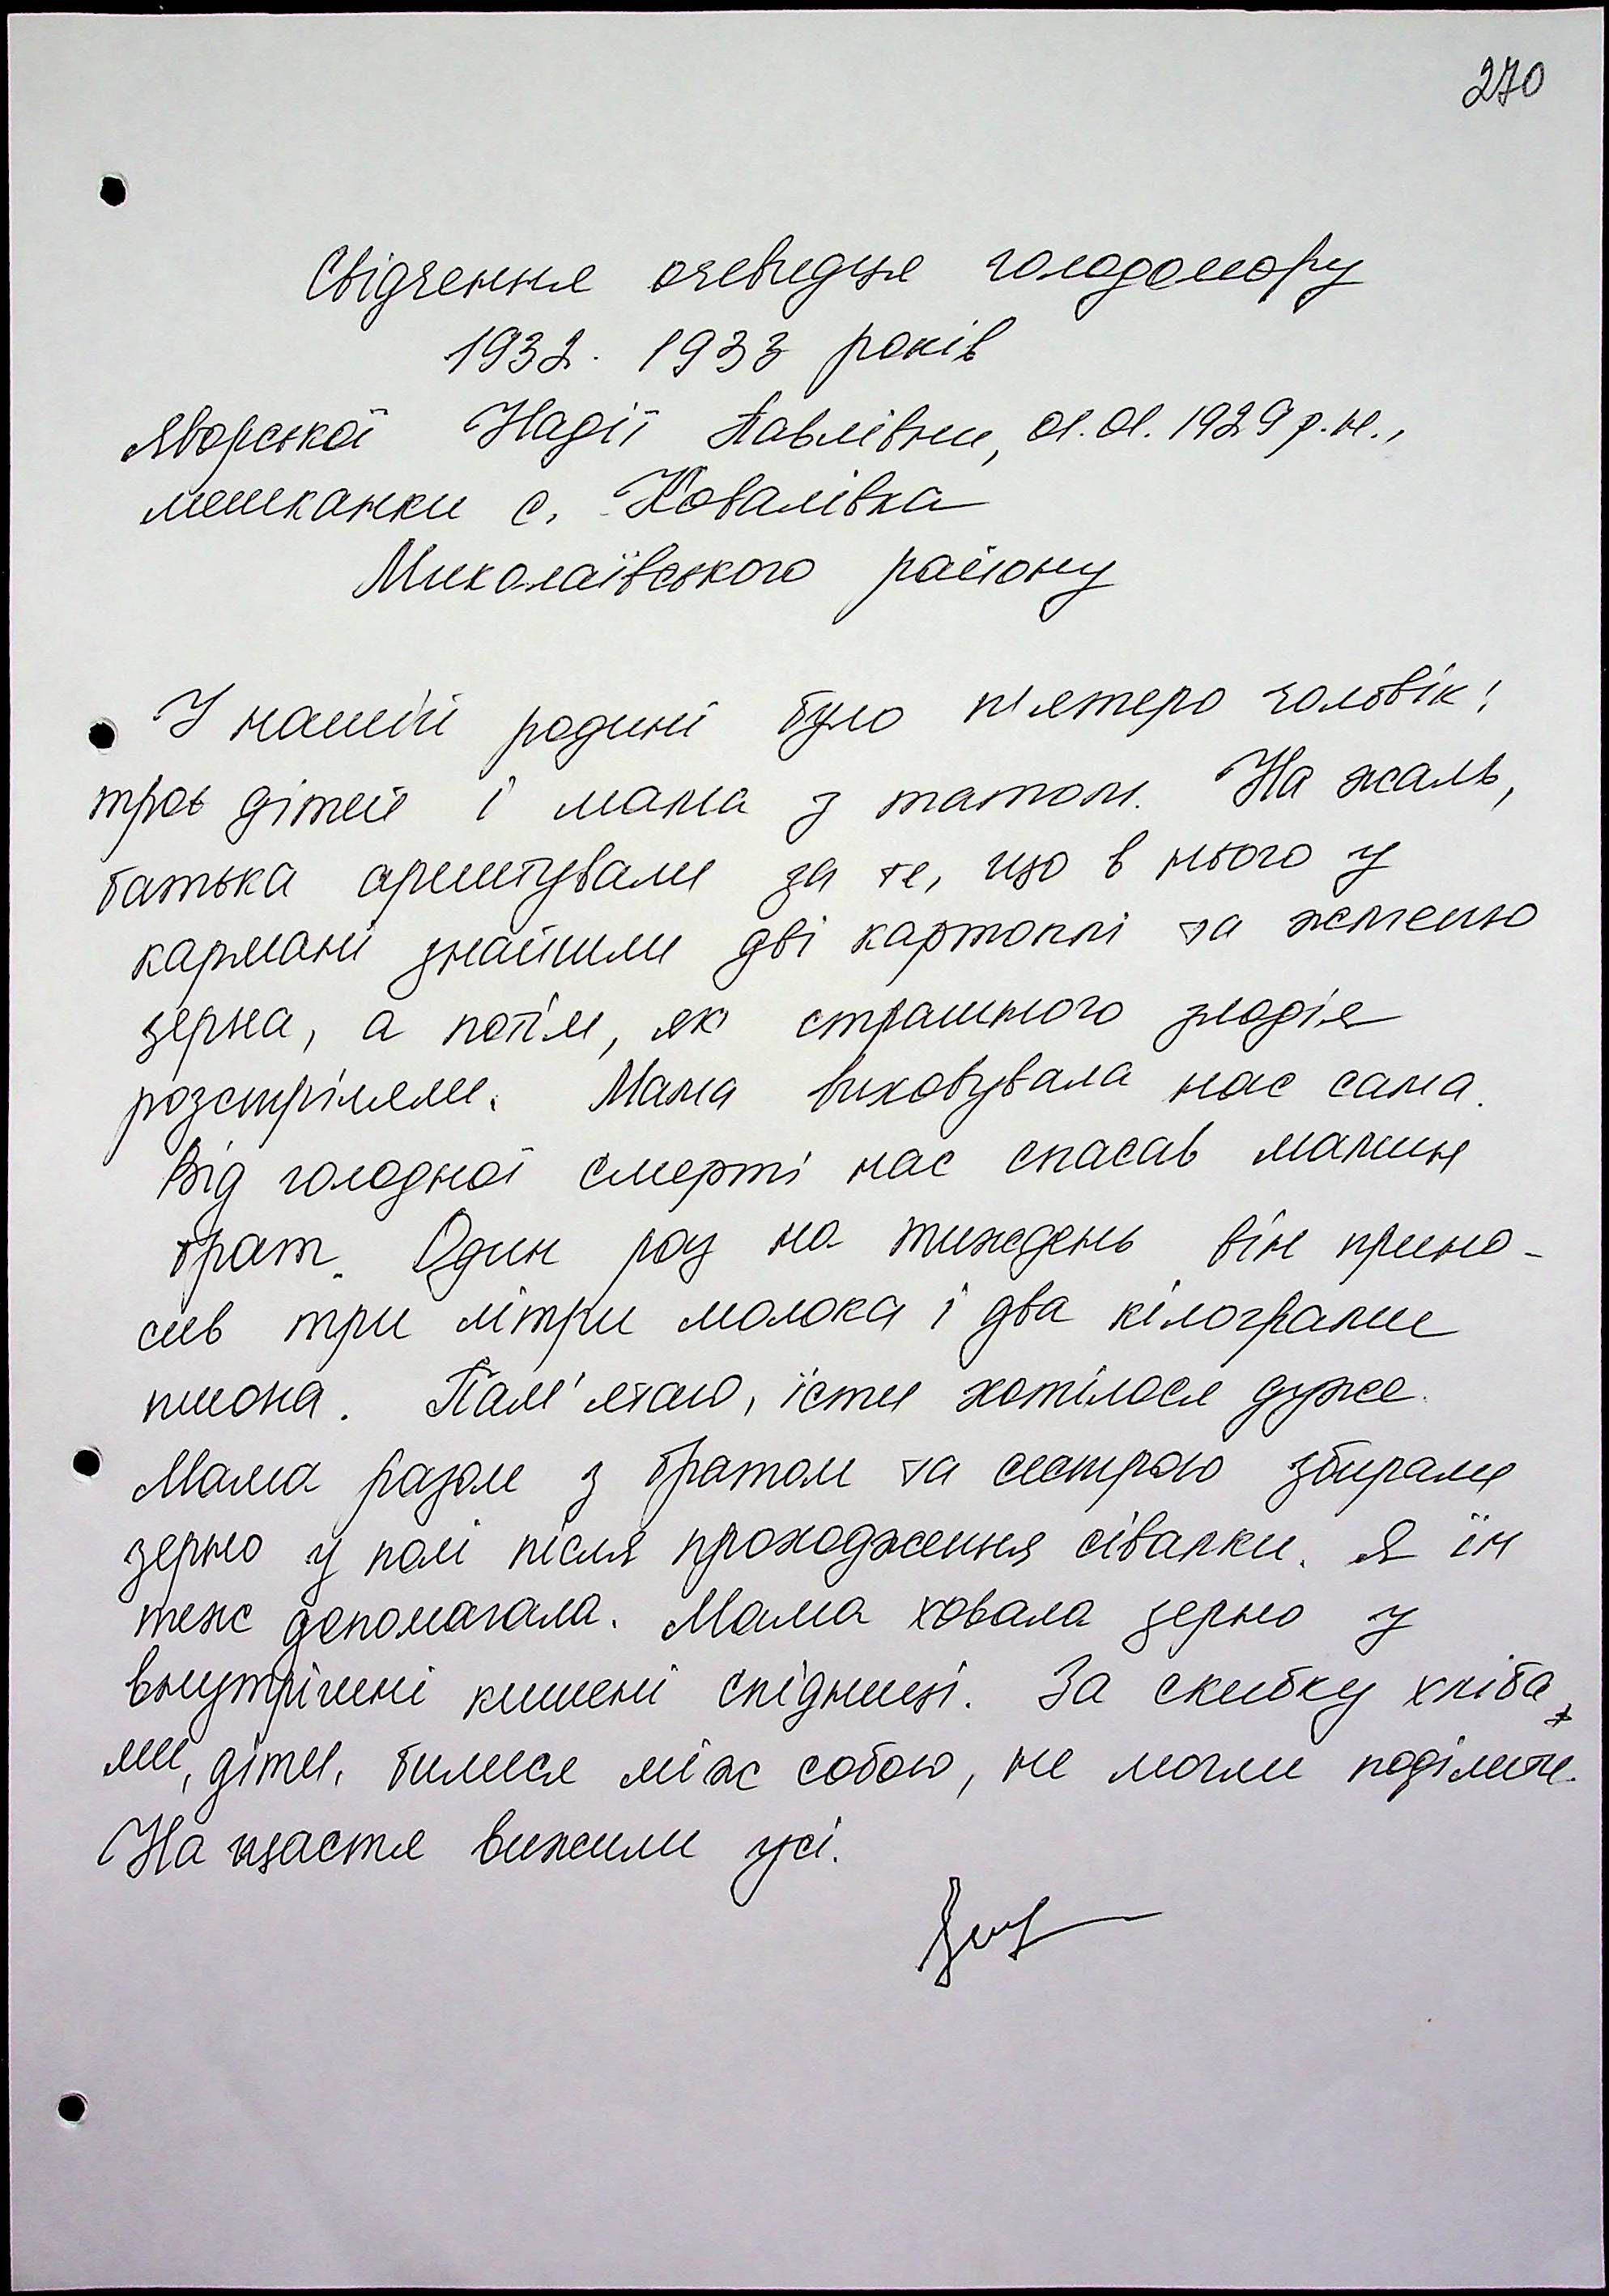 270
Свідчення очевидця голодомору
1932. 1933 років
Яворської Надії Павлівни, 01.01.1929 р.н.,
мешканки с. Ковалівка
Миколаївського району
У нашій родині було п'ятеро чоловік:
троє дітей і мама з татом. На жаль,
батька арештували за те, що в нього у
кармані знайшли дві картоплі та жменю
зерна, а потім, як страшного злодія
розстріляли. Мама виховувала нас сама.
Від голодної смерті нас спасав мамин
брат. Один раз на тиждень він прино-
сив три літри молока і два кілограми
пшона. Пам'ятаю, їсти хотілося дуже.
Мама разом з братом та сестрою збирали
зерно у полі після проходження сівалки. Я їм
теж допомагала. Мама ховала зерно у
внутрішні кишені спідниці. За скибку хліба,
ми, діти, билися між собою, не могли поділити.
На щастя вижили усі.